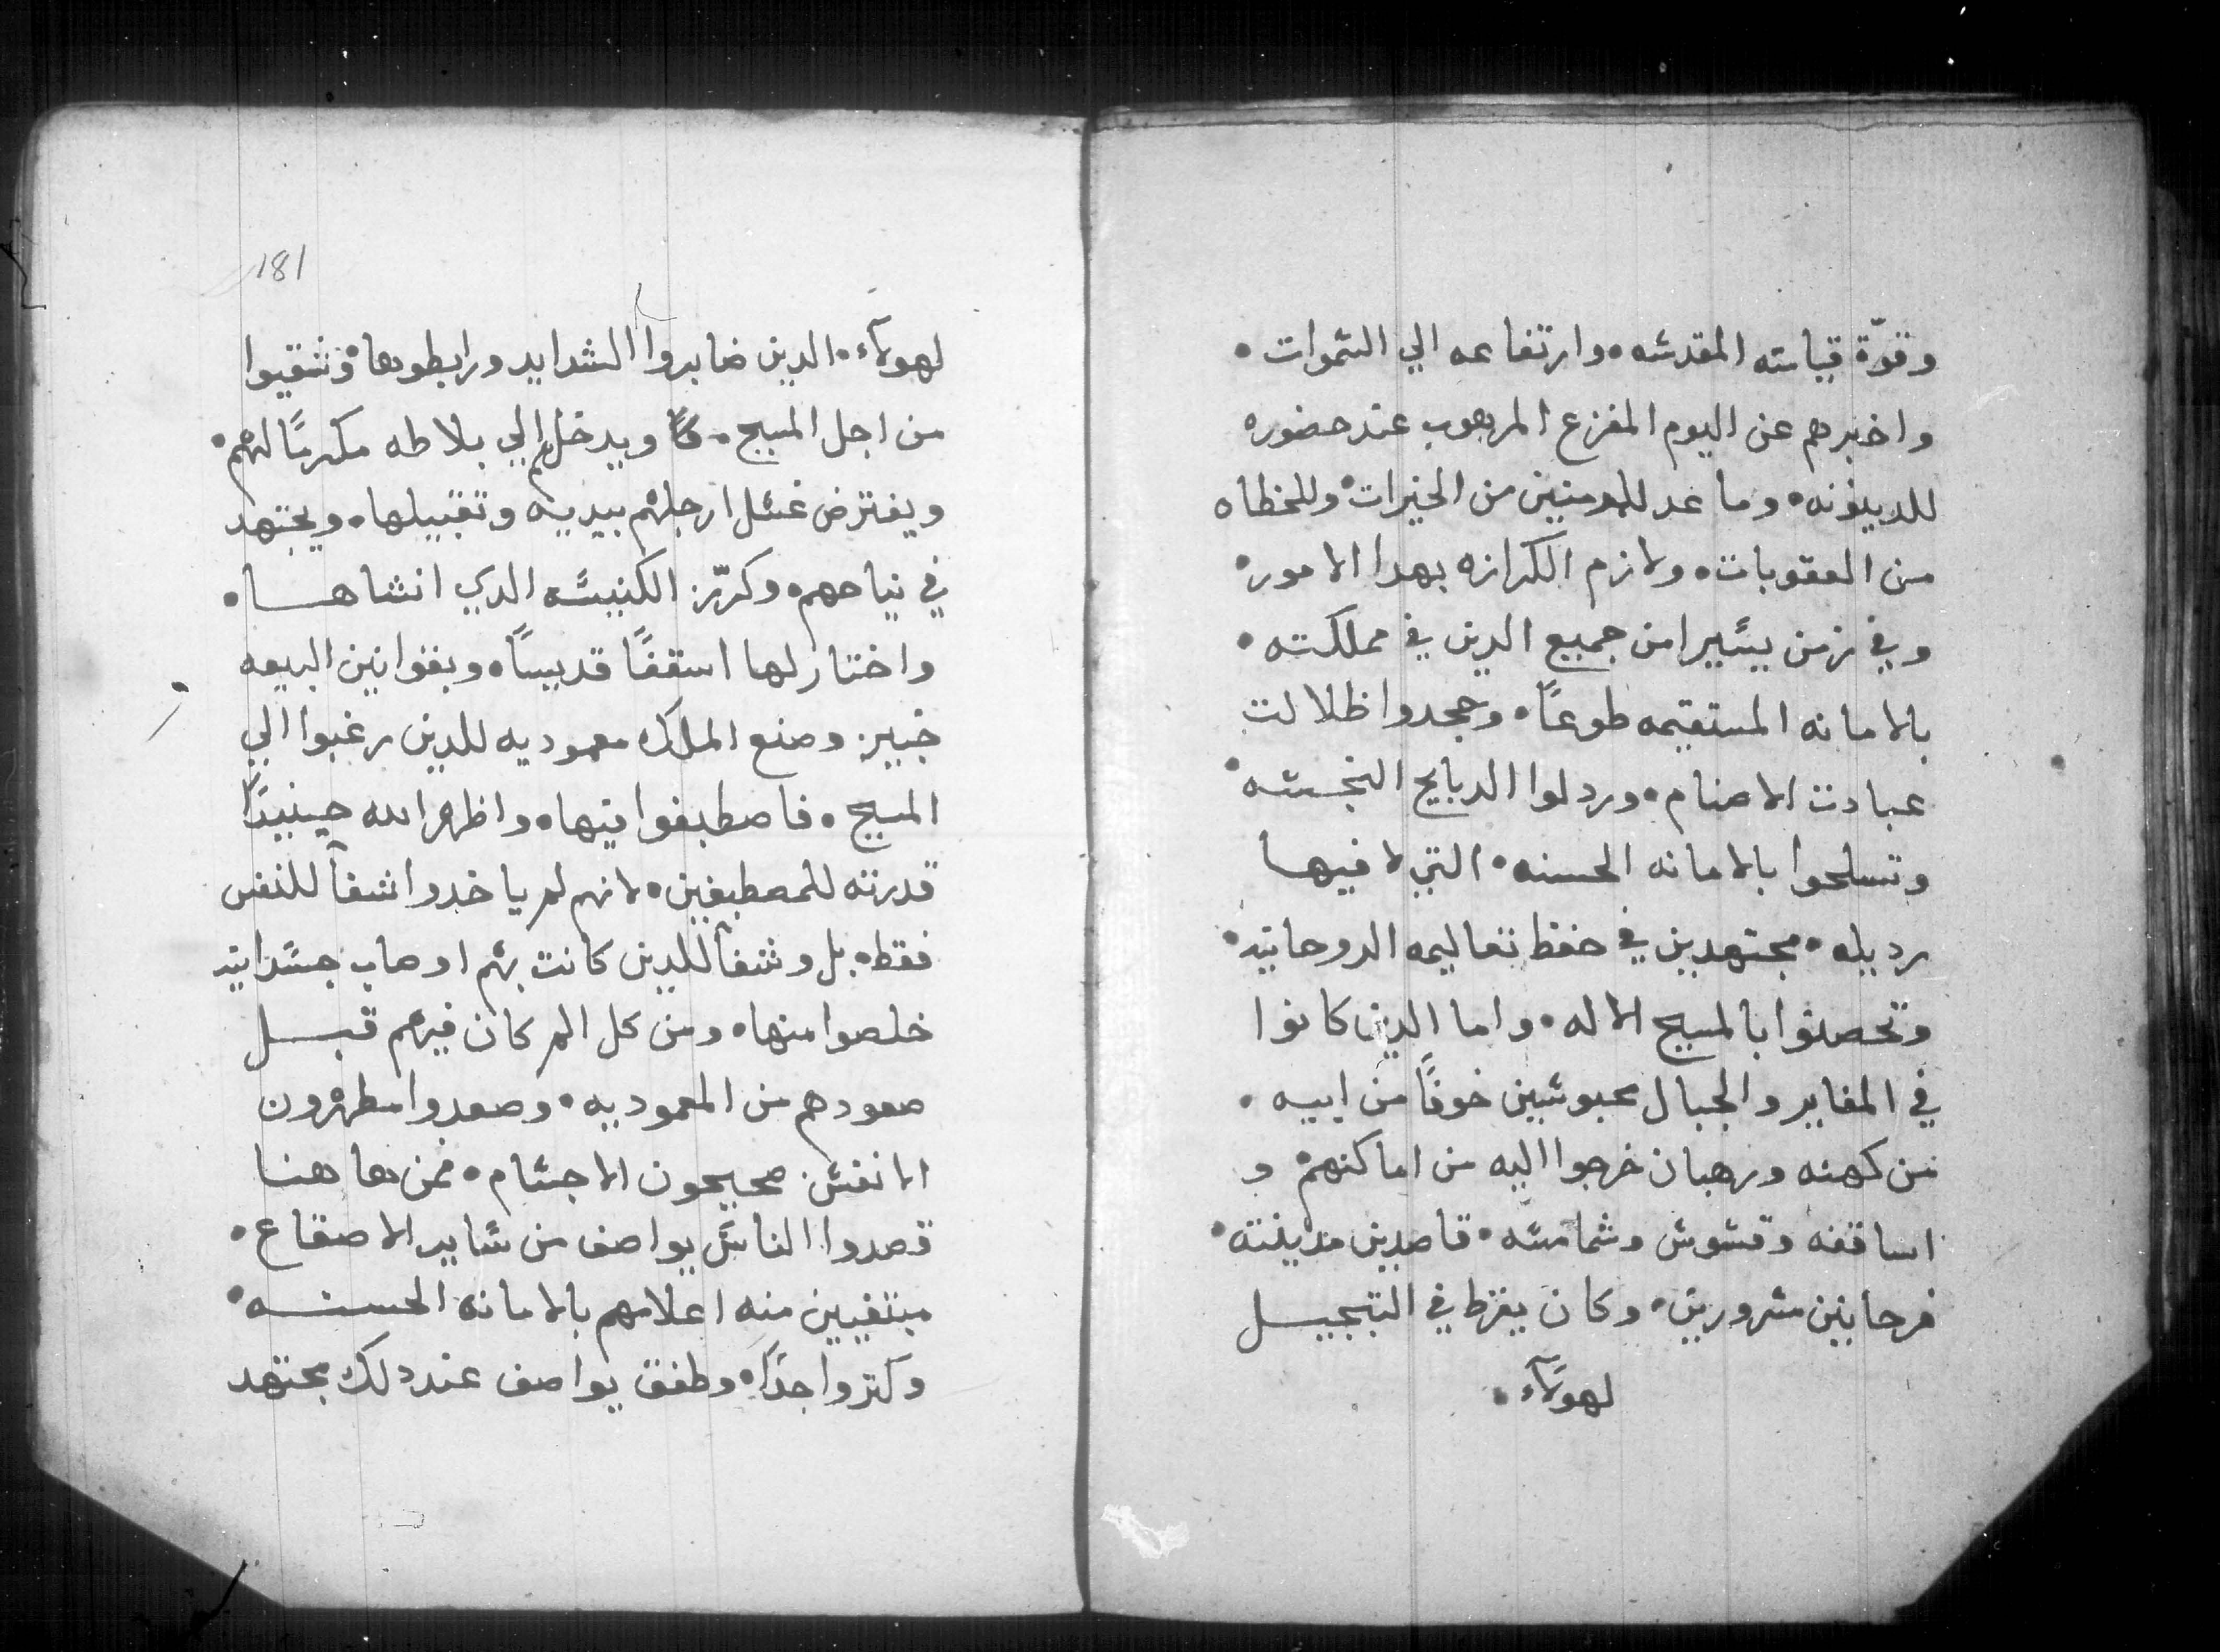 وقوّة قيامته المقدسه • وارتفاعه الي السموات •
واخبرهم عن اليوم المفزع المرهوب عند حضوره
للدينونه • وما عد للمومنين من الخيرات • وللخطاه
من العقوبات • ولازم الكرازه بهدا الامور •
وفي زمن يسير امن جميع الدين في مملكته •
بالامانه المستقيمه طوعًا • وجحدوا ظلالت
عبادت الاصنام • وردلوا الدبايح النجسه •
وتسلحوا بالامانه الحسنه • التي لا فيها
رديله • مجتهدين في حفظ تعاليمه الروحانيه •
وتحصنوا بالمسيح الاله • واما الدين كانوا
في المغاير والجبال محبوسين خوفًا من ابيه •
من كهنه ورهبان خرجوا اليه من اماكنهم • و
اساقفه وقسوس وشمامسه • قاصدين مدينته •
فرحانين مسرورين • وكان يفرط في التبجيل
لهولآء •
181
لهولآء • الدين صابروا الشدايد ورابطوها • وشقيوا
من اجل المسيح • ويدخلهم الي بلاطه مكرمًا لهم •
ويفترض غسل ارجلهم بيديه وتقبيلها • ويجتهد
في نياحهم • وكرّز الكنيسه الدي انشاها •
واختار لها اسقفًا قديسًا • وبقوانين البيعه
خبير • وصنع الملك معموديه للدين رغبوا الي
المسيح • فاصطبغوا فيها • واظهر الله حينيدًا
قدرته للمصطبغين • لانهم لم ياخدوا شفآ للنفس
فقط • بل وشفآ للدين كانت بهم اوصاب جسدانيه
خلصوا منها • ومن كل الم كان فيهم قبل
صعودهم من المعموديه • وصعدوا مطهرون
الانفس صحيحون الاجسام • فمن هاهنا
قصدوا الناس يواصف من ساير الاصقاع •
مبتغيين منه اعلامهم بالامانه الحسنه •
وكتروا جدًا • وطفق يواصف عند دلك مجتهد